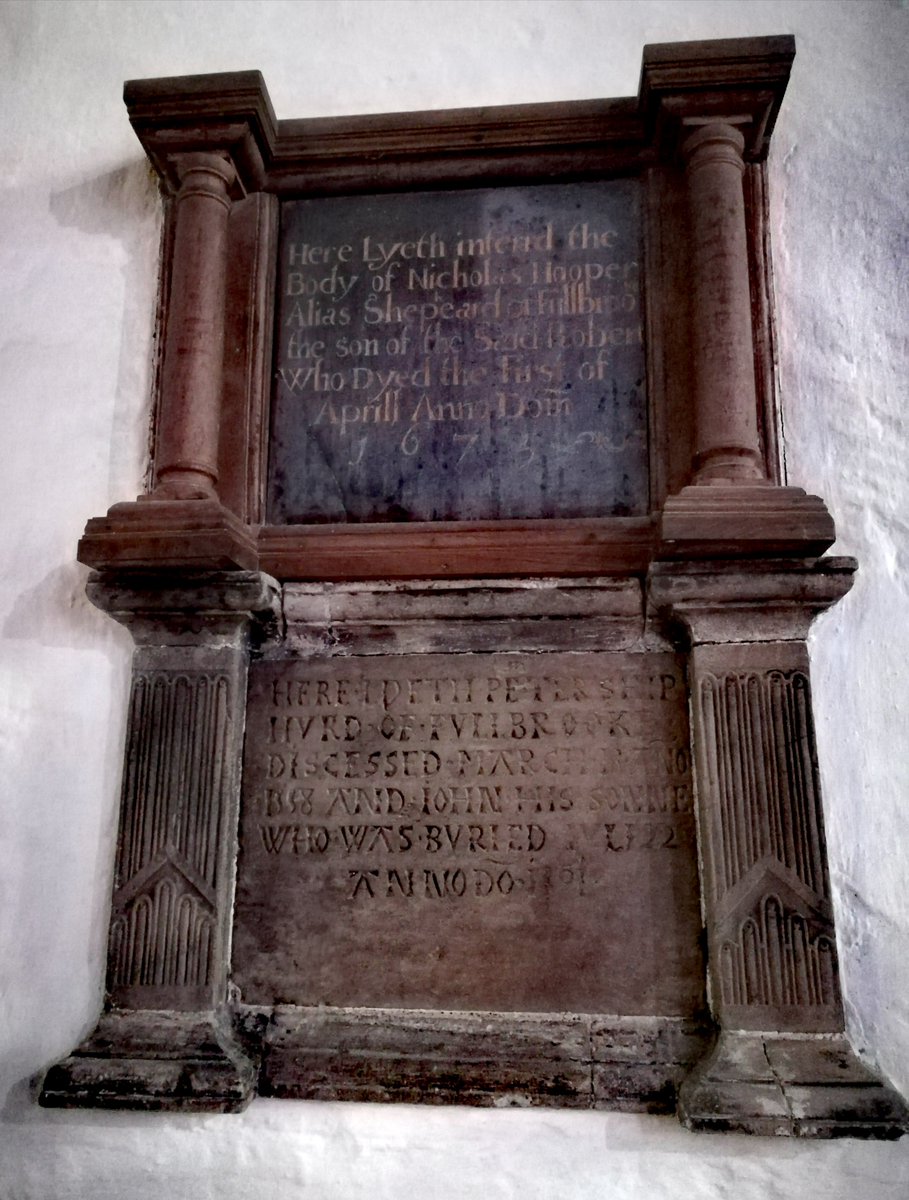 Here Lyeth interd the
Body of Nicholas Hooper
Alias Shepeard of Fullbroo
the son of the Said Robert
Who Dyed the First of
Aprill Anno Dom̄
1 6 7 3
HERE·LYETH PETER SHEP
HVRD·OF·FVLLBROOKE
DISCESSED·MARCH
AND·IOHN HIS SONNE
WHO·WAS·BVRIED 22
ANNO DO